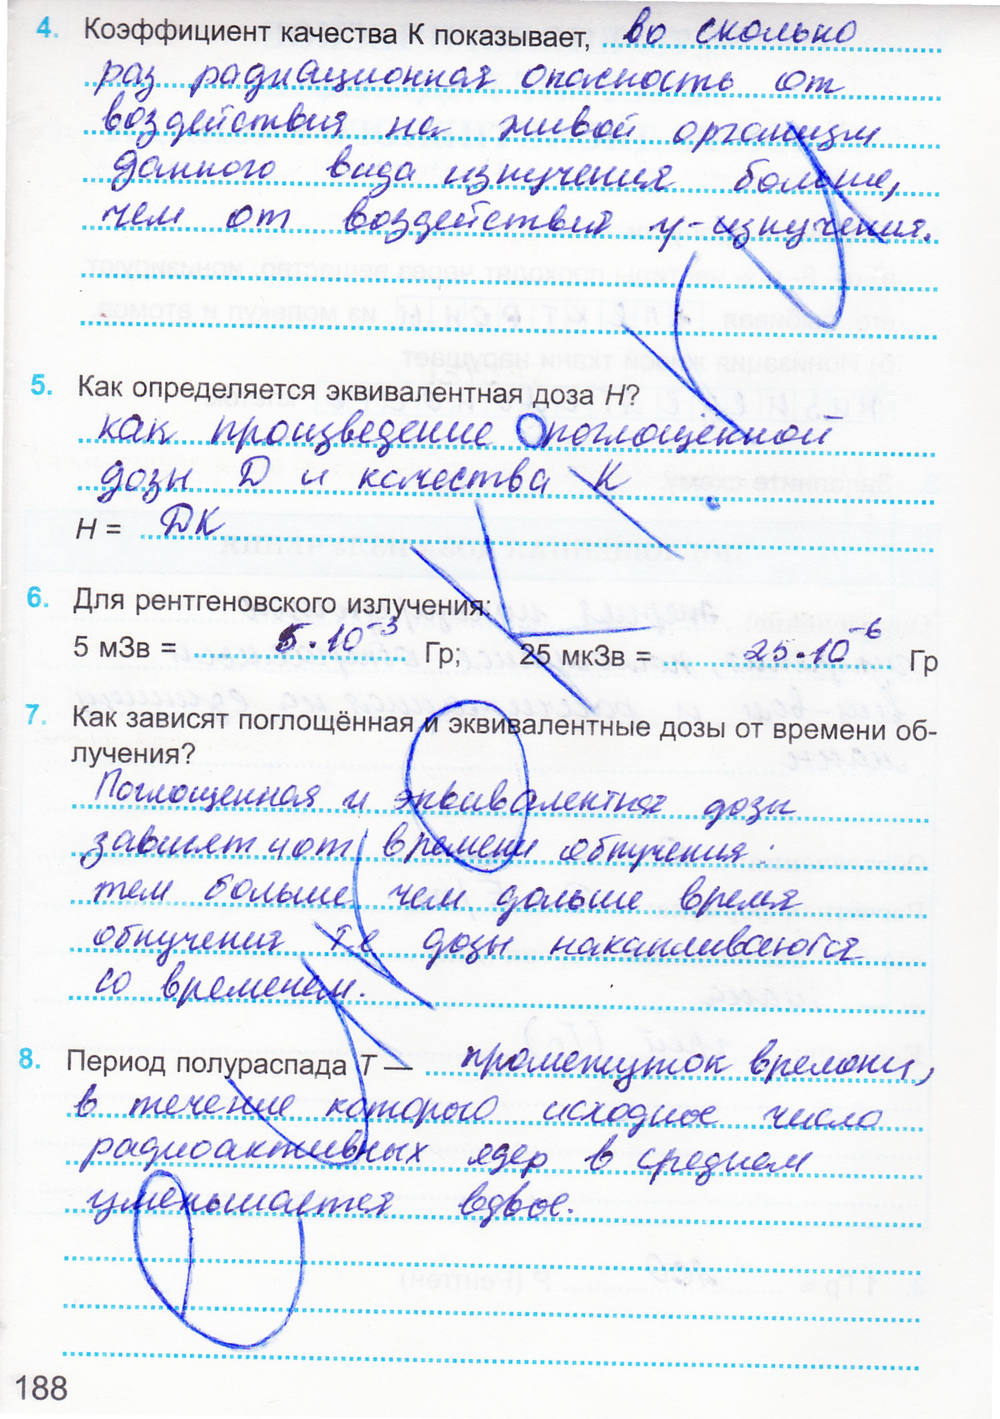 4. Коэффициент качества К показывает, во сколько
раз радиационная опасность от
воздействия на живой организм
данного вида излучения больше,
чем от воздействия γ-излучения.
5. Как определяется эквивалентная доза H?
как произведение поглощённой
дозы D и качества К
H = DК
6. Для рентгеновского излучения:
5 мЗв = 5·10⁻³ Гр; 25 мкЗв = 25·10⁻⁶ Гр
7. Как зависят поглощённая и эквивалентные дозы от времени об-
лучения?
Поглощенная и эквивалентная дозы
зависят и от времени облучения:
тем больше чем дольше время
облучения т.е дозы накапливаются
со временем.
8. Период полураспада T — промежуток времени,
в течение которого исходное число
радиоактивных ядер в среднем
уменьшается вдвое.
188